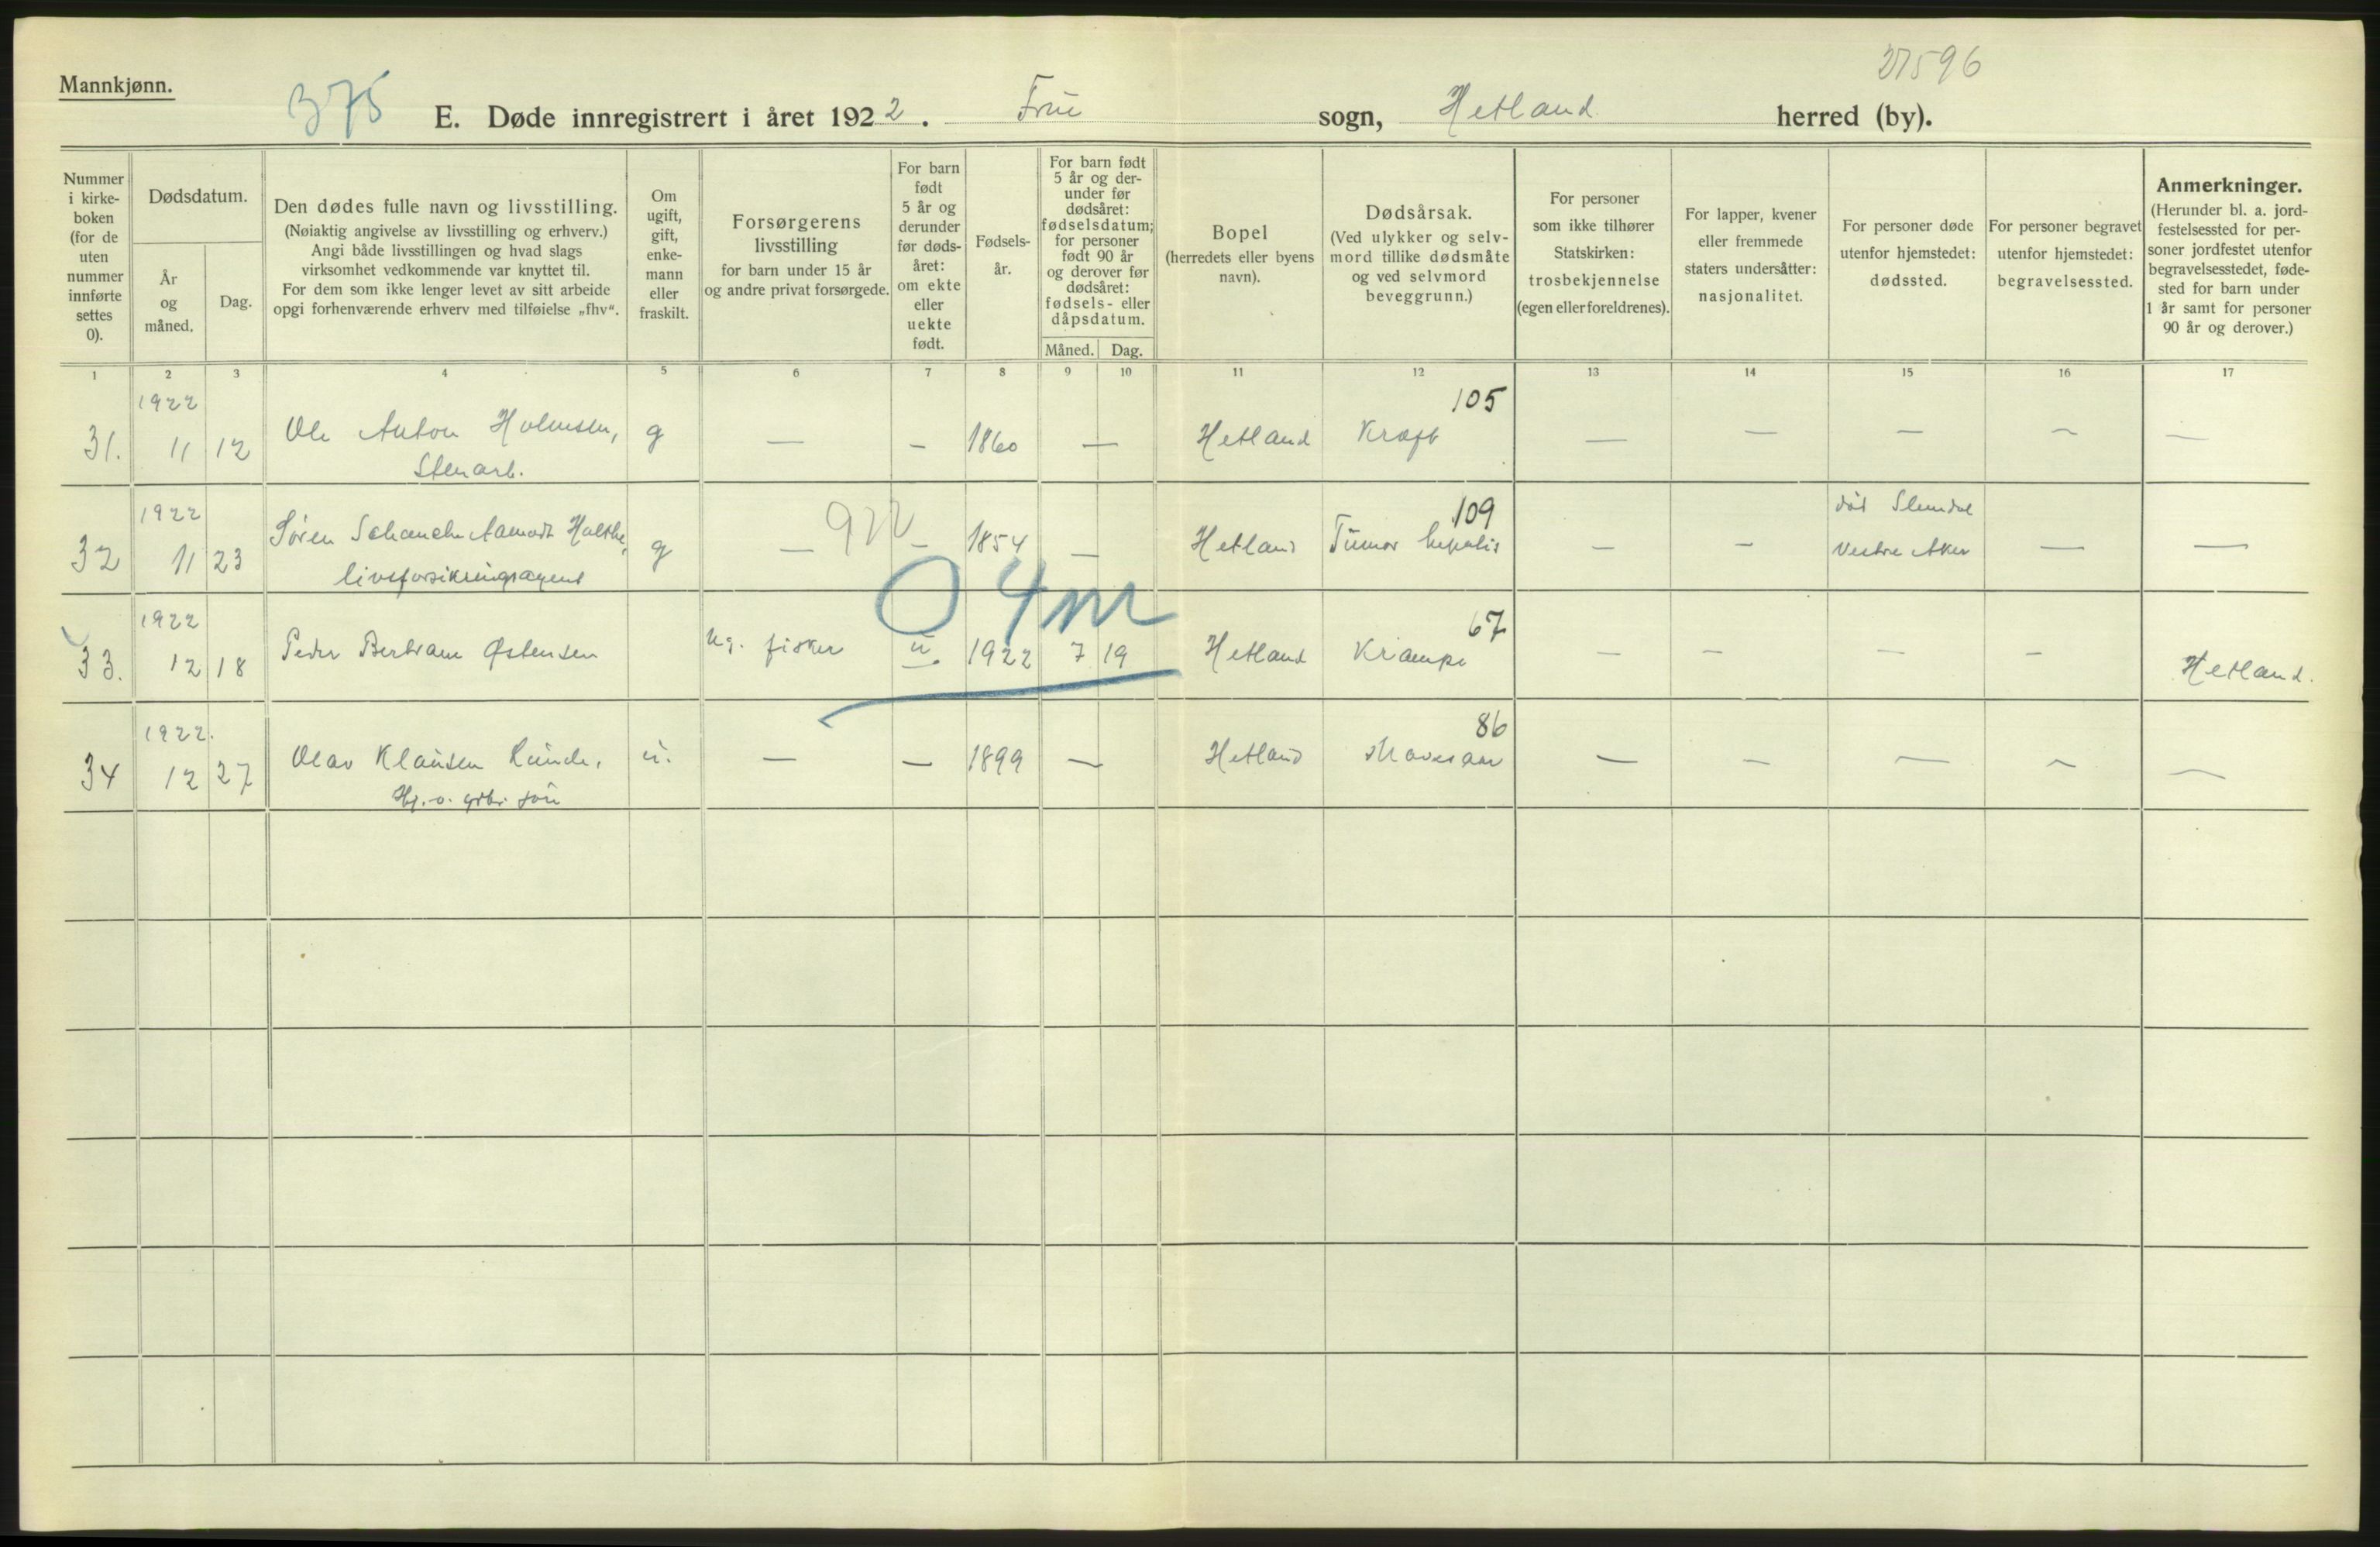 27596
Mannkjønn.
375 E. Døde innregistrert i året 1922. Frue sogn, Hetland herred (by).
Nummer i kirke-boken (for de uten nummer innførte settes 0).
Dødsdatum.
År og måned.
Dag.
Den dødes fulle navn og livsstilling.
(Nøiaktig angivelse av livsstilling og erhverv.)
Angi både livsstillingen og hvad slags
virksomhet vedkommende var knyttet til.
For dem som ikke lenger levet av sitt arbeide
opgi forhenværende erhverv med tilføielse „fhv“.
Om ugift, gift, enke-mann eller fraskilt.
Forsørgerens livsstilling
for barn under 15 år
og andre privat forsørgede.
For barn født 5 år og derunder før døds-året: om ekte eller uekte født.
Fødsels-år.
For barn født 5 år og der-under før dødsåret: fødselsdatum; for personer født 90 år og derover før dødsåret: fødsels- eller dåpsdatum.
Måned. Dag.
Bopel
(herredets eller byens navn).
Dødsårsak.
(Ved ulykker og selv-mord tillike dødsmåte og ved selvmord beveggrunn.)
For personer som ikke tilhører Statskirken: trosbekjennelse (egen eller foreldrenes).
For lapper, kvener eller fremmede staters undersåtter: nasjonalitet.
For personer døde utenfor hjemstedet: dødssted.
For personer begravet utenfor hjemstedet: begravelsessted.
Anmerkninger.
(Herunder bl. a. jord-festelsessted for per-soner jordfestet utenfor begravelsesstedet, føde-sted for barn under 1 år samt for personer 90 år og derover.)
1 2 3 4 5 6 7 8 9 10 11 12 13 14 15 16 17
1922 105
31. 11 12 Ole Anton Holmsen, g — — 1860 — Hetland Kræft — — — — —
Stenarb.
1922 922 109 død Slemdal
32 11 23 Søren Schanche Aamodt Holthe, g — — 1854 — Hetland Tumor hepatis — — Vestre Aker — —
livsforsikringsagent
0 4 m
1922 67
33. 12 18 Peder Bertram Østensen Ug. fisker u. 1922 7 19 Hetland Krampe — — — — Hetland.
1922. 86
34 12 27 Olav Klausen Runde, u. — — 1899 — Hetland Mavesaar — — — — —
Hj. o. grbr. søn